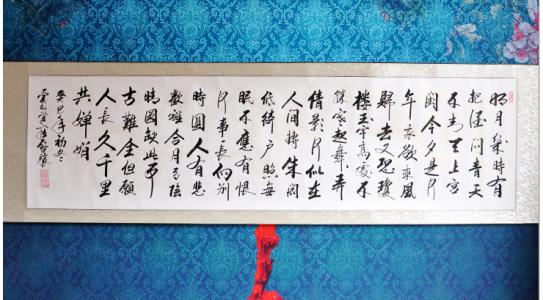 明月幾時有
把酒问青天
不知天上宫
阙今夕是何
年我欲乘風
歸去又恐瓊
樓玉宇高處不
勝寒起舞弄
清影何似在
人间轉朱阁
低绮户照無
眠不應有恨
何事長向别
時圓人有悲
歡離合月有陰
晴圆缺此事
古難全但願
人長久千里
共嬋娟
癸巳年初冬